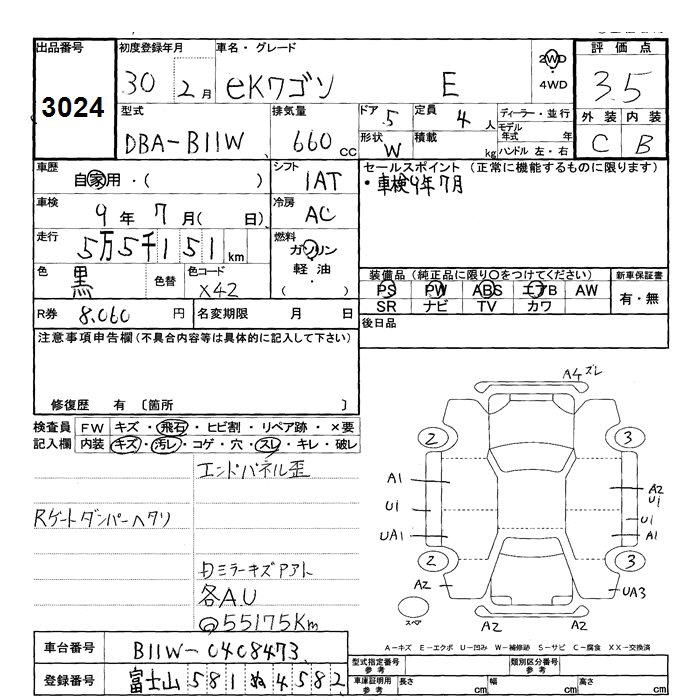 出品番号 初度登録年月 車名・グレード 評価点
3024 30 2月 eKワゴン E 2WD 4WD 3.5
型式 排気量 ドア 5 定員 4人 ディーラー・並行 外装 内装
DBA-B11W 660cc 形状 W 積載 kg モデル年式 年 ハンドル 左・右 C B
車歴 自家用・( ) シフト 1AT セールスポイント (正常に機能するものに限ります)
・車検9年7月
車検 9年7月( 日) 冷房 AC
走行 5万5千151km 燃料 ガソリン・軽油・( )
色 黒 色替 色コード X42 装備品 (純正品に限り○をつけてください) 新車保証書
PS PW ABS エアB AW 有・無
SR ナビ TV カワ
R券 8,060円 名変期限 月 日 後日品
注意事項申告欄 (不具合内容等は具体的に記入して下さい)
修復歴 有 〔箇所 〕
検査員 FW キズ・飛石・ヒビ割・リペア跡・×要
記入欄 内装 キズ・汚レ・コゲ・穴・スレ・キレ・破レ
エンドパネル歪
Rゲートダンパーヘタリ
ミラーキズアアト
各A.U
@55175Km
A4 ズレ
2 3
A1 A2 U1
U1 U1
UA1 A1
2 3
A2 UA3
スペア A2 A2
A-キズ E-エクボ U-凹み W-補修跡 S-サビ C-腐食 XX-交換済
車台番号 B11W-0408473
型式指定番号 参考 類別区分番号 参考
登録番号 富士山 581 ぬ 4582
車庫証明用 参考 長さ cm 幅 cm 高さ cm